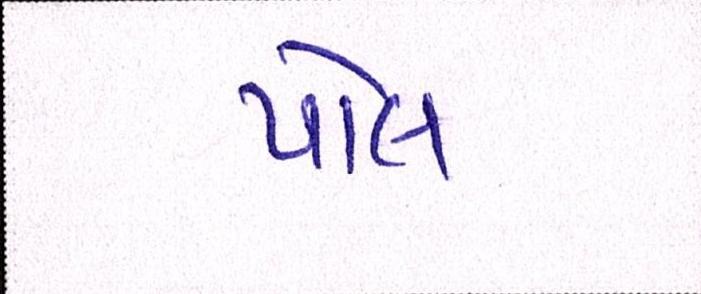 પોલ